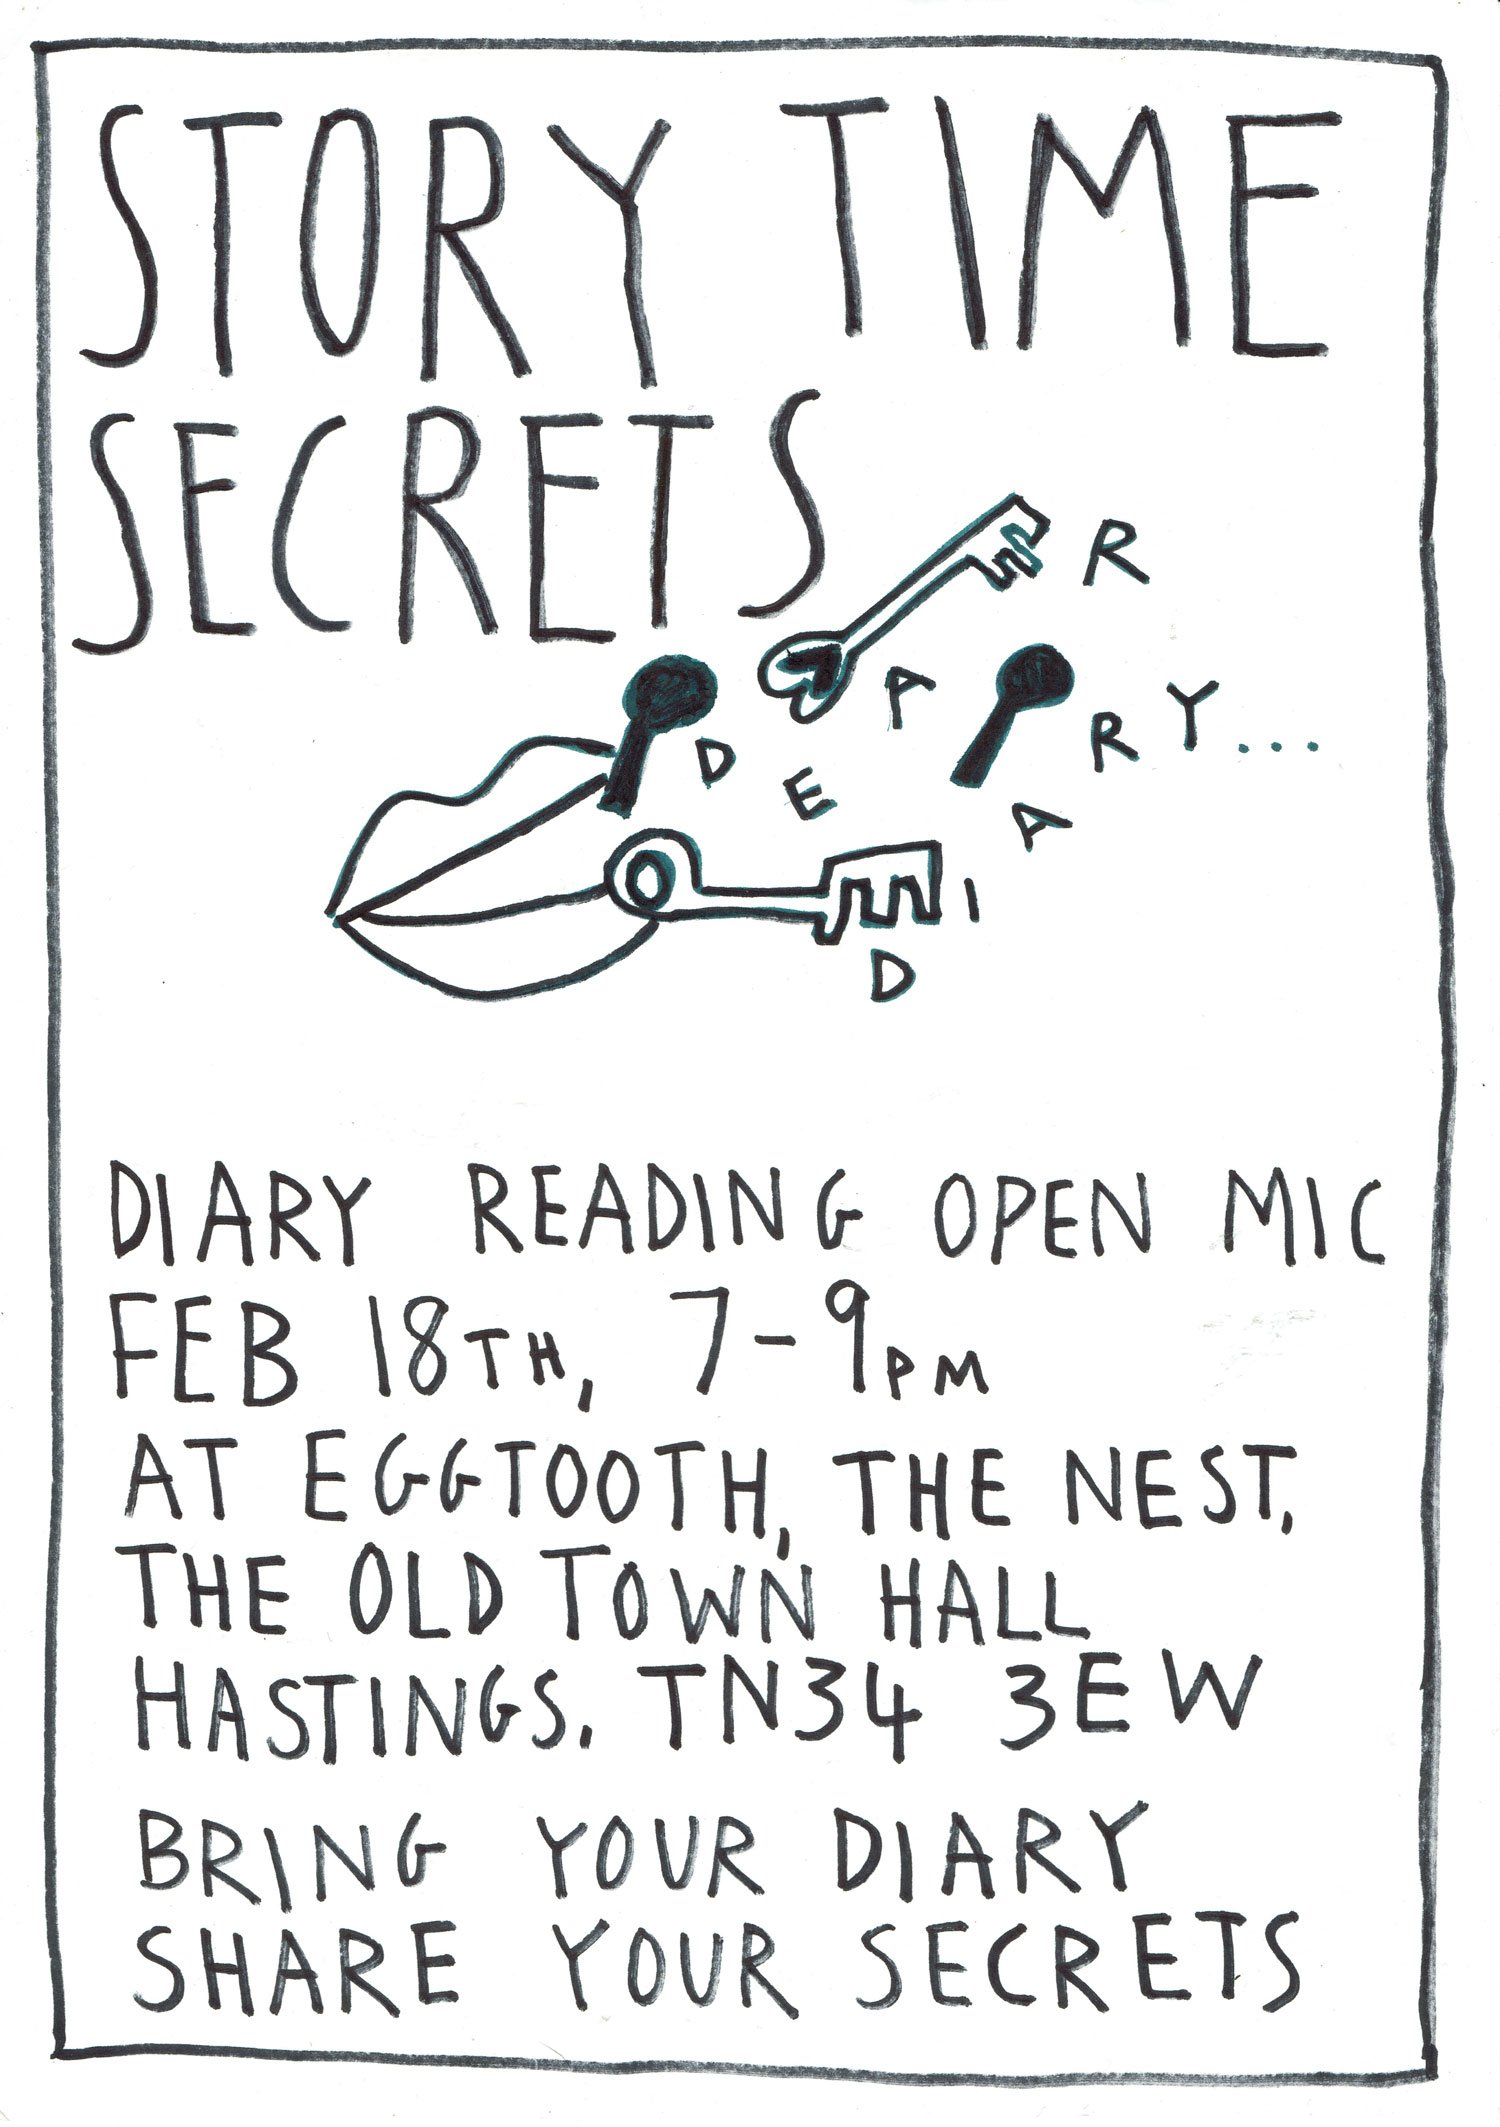 STORY TIME
SECRETS
DEAR
DIARY...
DIARY READING OPEN MIC
FEB 18TH, 7-9PM
AT EGGTOOTH, THE NEST,
THE OLD TOWN HALL
HASTINGS. TN34 3EW
BRING YOUR DIARY
SHARE YOUR SECRETS